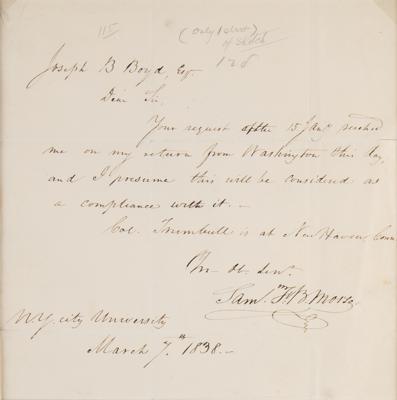 115
(Only 1 sheet)
of sketch
126
Joseph B Boyd, Esqr
Dear Sir,
Your request of the 15 Jany reached
me on my return from Washington this day,
and I presume this will be considered as
a compliance with it.—
Col. Trumbull is at New Haven, Conn
Yr. Ob. Servt.
Saml. F. B. Morse
N.Y. city University
March 7th 1838.—